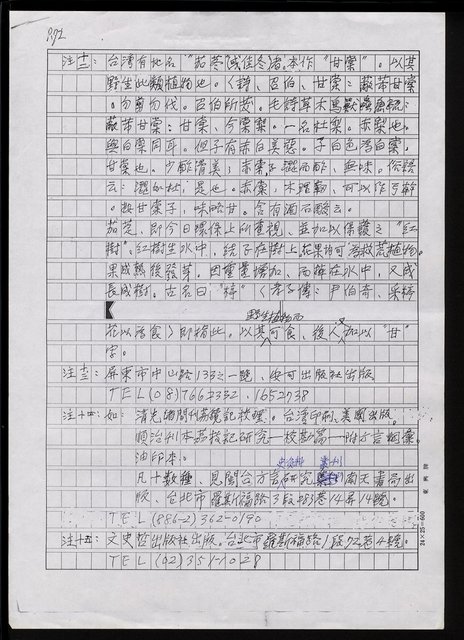 P.92
註十二：台灣有地名"茄苳(或佳冬)者,本作"甘棠"。以其
野生此類植物也。〈詩、召伯、甘棠：蔽芾甘棠
。勿翦勿伐。召伯所茇。毛詩草木鳥獸蟲魚疏：
蔽芾甘棠：甘棠、今棠梨。一名杜梨。赤棠也。
與白棠同耳。但子有赤白美惡。子白色為白棠、
甘棠也、少酢滑美；赤棠子澀而酢、無味。俗語
云：澀如杜、是也。赤棠、木理韌、可以作弓幹
。按甘棠子，味略甘。含有酒石酸云。
茄芝、即今日環保上所重視、並加以保護之"紅
樹"。紅樹生水中、結子在樹上,花果均可為救荒植物。
果成熟後發芽。因重量增加、而掉在水中，又成
長成樹。古名曰"梓"〈孝子傳：尹伯奇、采梓
野生植物而 又
花以濟食〉即指此。以其可食、後人加以"甘"
字。
註十三：屏東市中山路133之一號、安可出版社出版
TEL(08)7662332.1652738
註十四：如：清光緒間刊荔鏡記校理。台灣印刷、美國出版。
順治刊本荔枝記研究—校勘篇—附方言詞彙。
油印本。
凡十數種、見閩台方言研究 南天書局出
版、台北市羅斯福路3段283巷14弄14號。
TEL(886-2)362-0190
註十五：文史哲出版社出版。台北市羅斯福路1段72巷4號。
TEL(02)351-1028
24×25=600